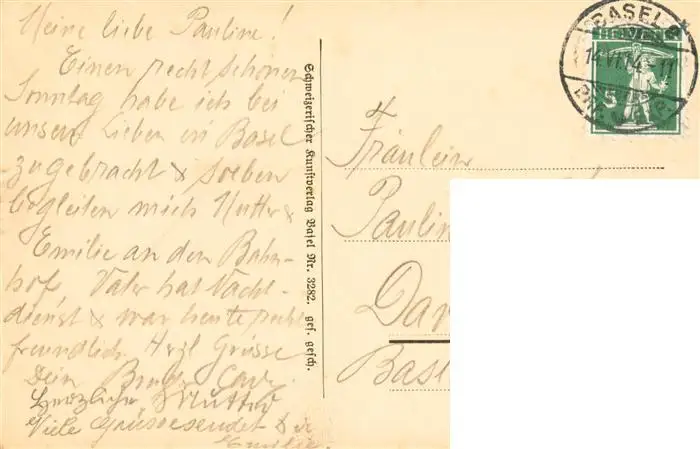 Meine liebe Pauline!
Einen recht schönen
Sonntag habe ich bei
unsern Lieben in Basel
zugebracht & soeben
begleiten mich Mutter &
Emilie an den Bahn-
hof. Vater hat Nacht-
dienst & war heute recht
freundlich. Hrzl Grüsse
Dein Bruder
Herzliche Mutter
Viele Grüsse sendet Dir
Emilie.
Schweizerischer Kunstverlag Basel Nr. 3282. ges. gesch.
BASEL 2
14.VI.14.-11
HELVETIA
5
Fräulein
Paulin
Dar
Basel